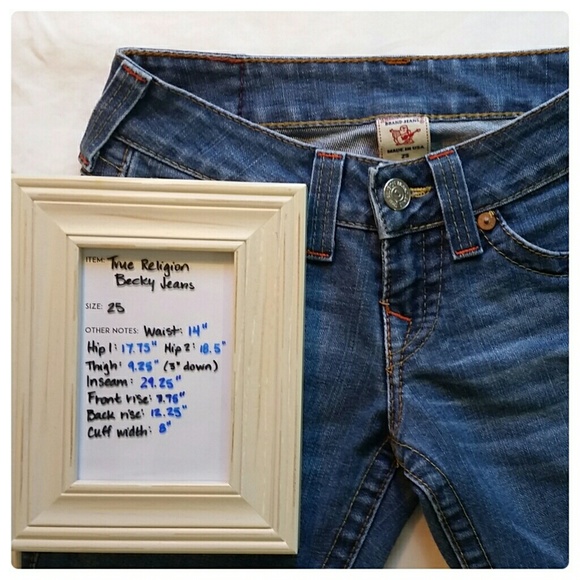 ITEM: True Religion
Becky Jeans
SIZE: 25
OTHER NOTES: Waist: 14"
Hip 1: 17.75" Hip 2: 18.5"
Thigh: 9.25" (3" down)
Inseam: 29.25"
Front rise: 7.75"
Back rise: 12.25"
Cuff width: 8"
BRAND JEANS
MADE IN USA
25